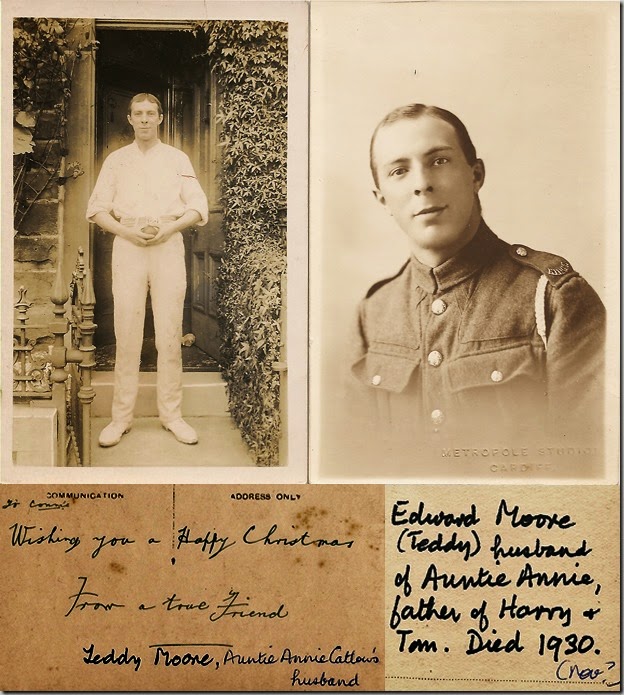 METROPOLE STUDIOS
CARDIFF
COMMUNICATION
ADDRESS ONLY
To Connie
Wishing you a Happy Christmas
From a true Friend
Teddy Moore, Auntie Annie Catlow's
husband
Edward Moore
(Teddy) husband
of Auntie Annie,
father of Harry &
Tom. Died 1930.
(Nov?